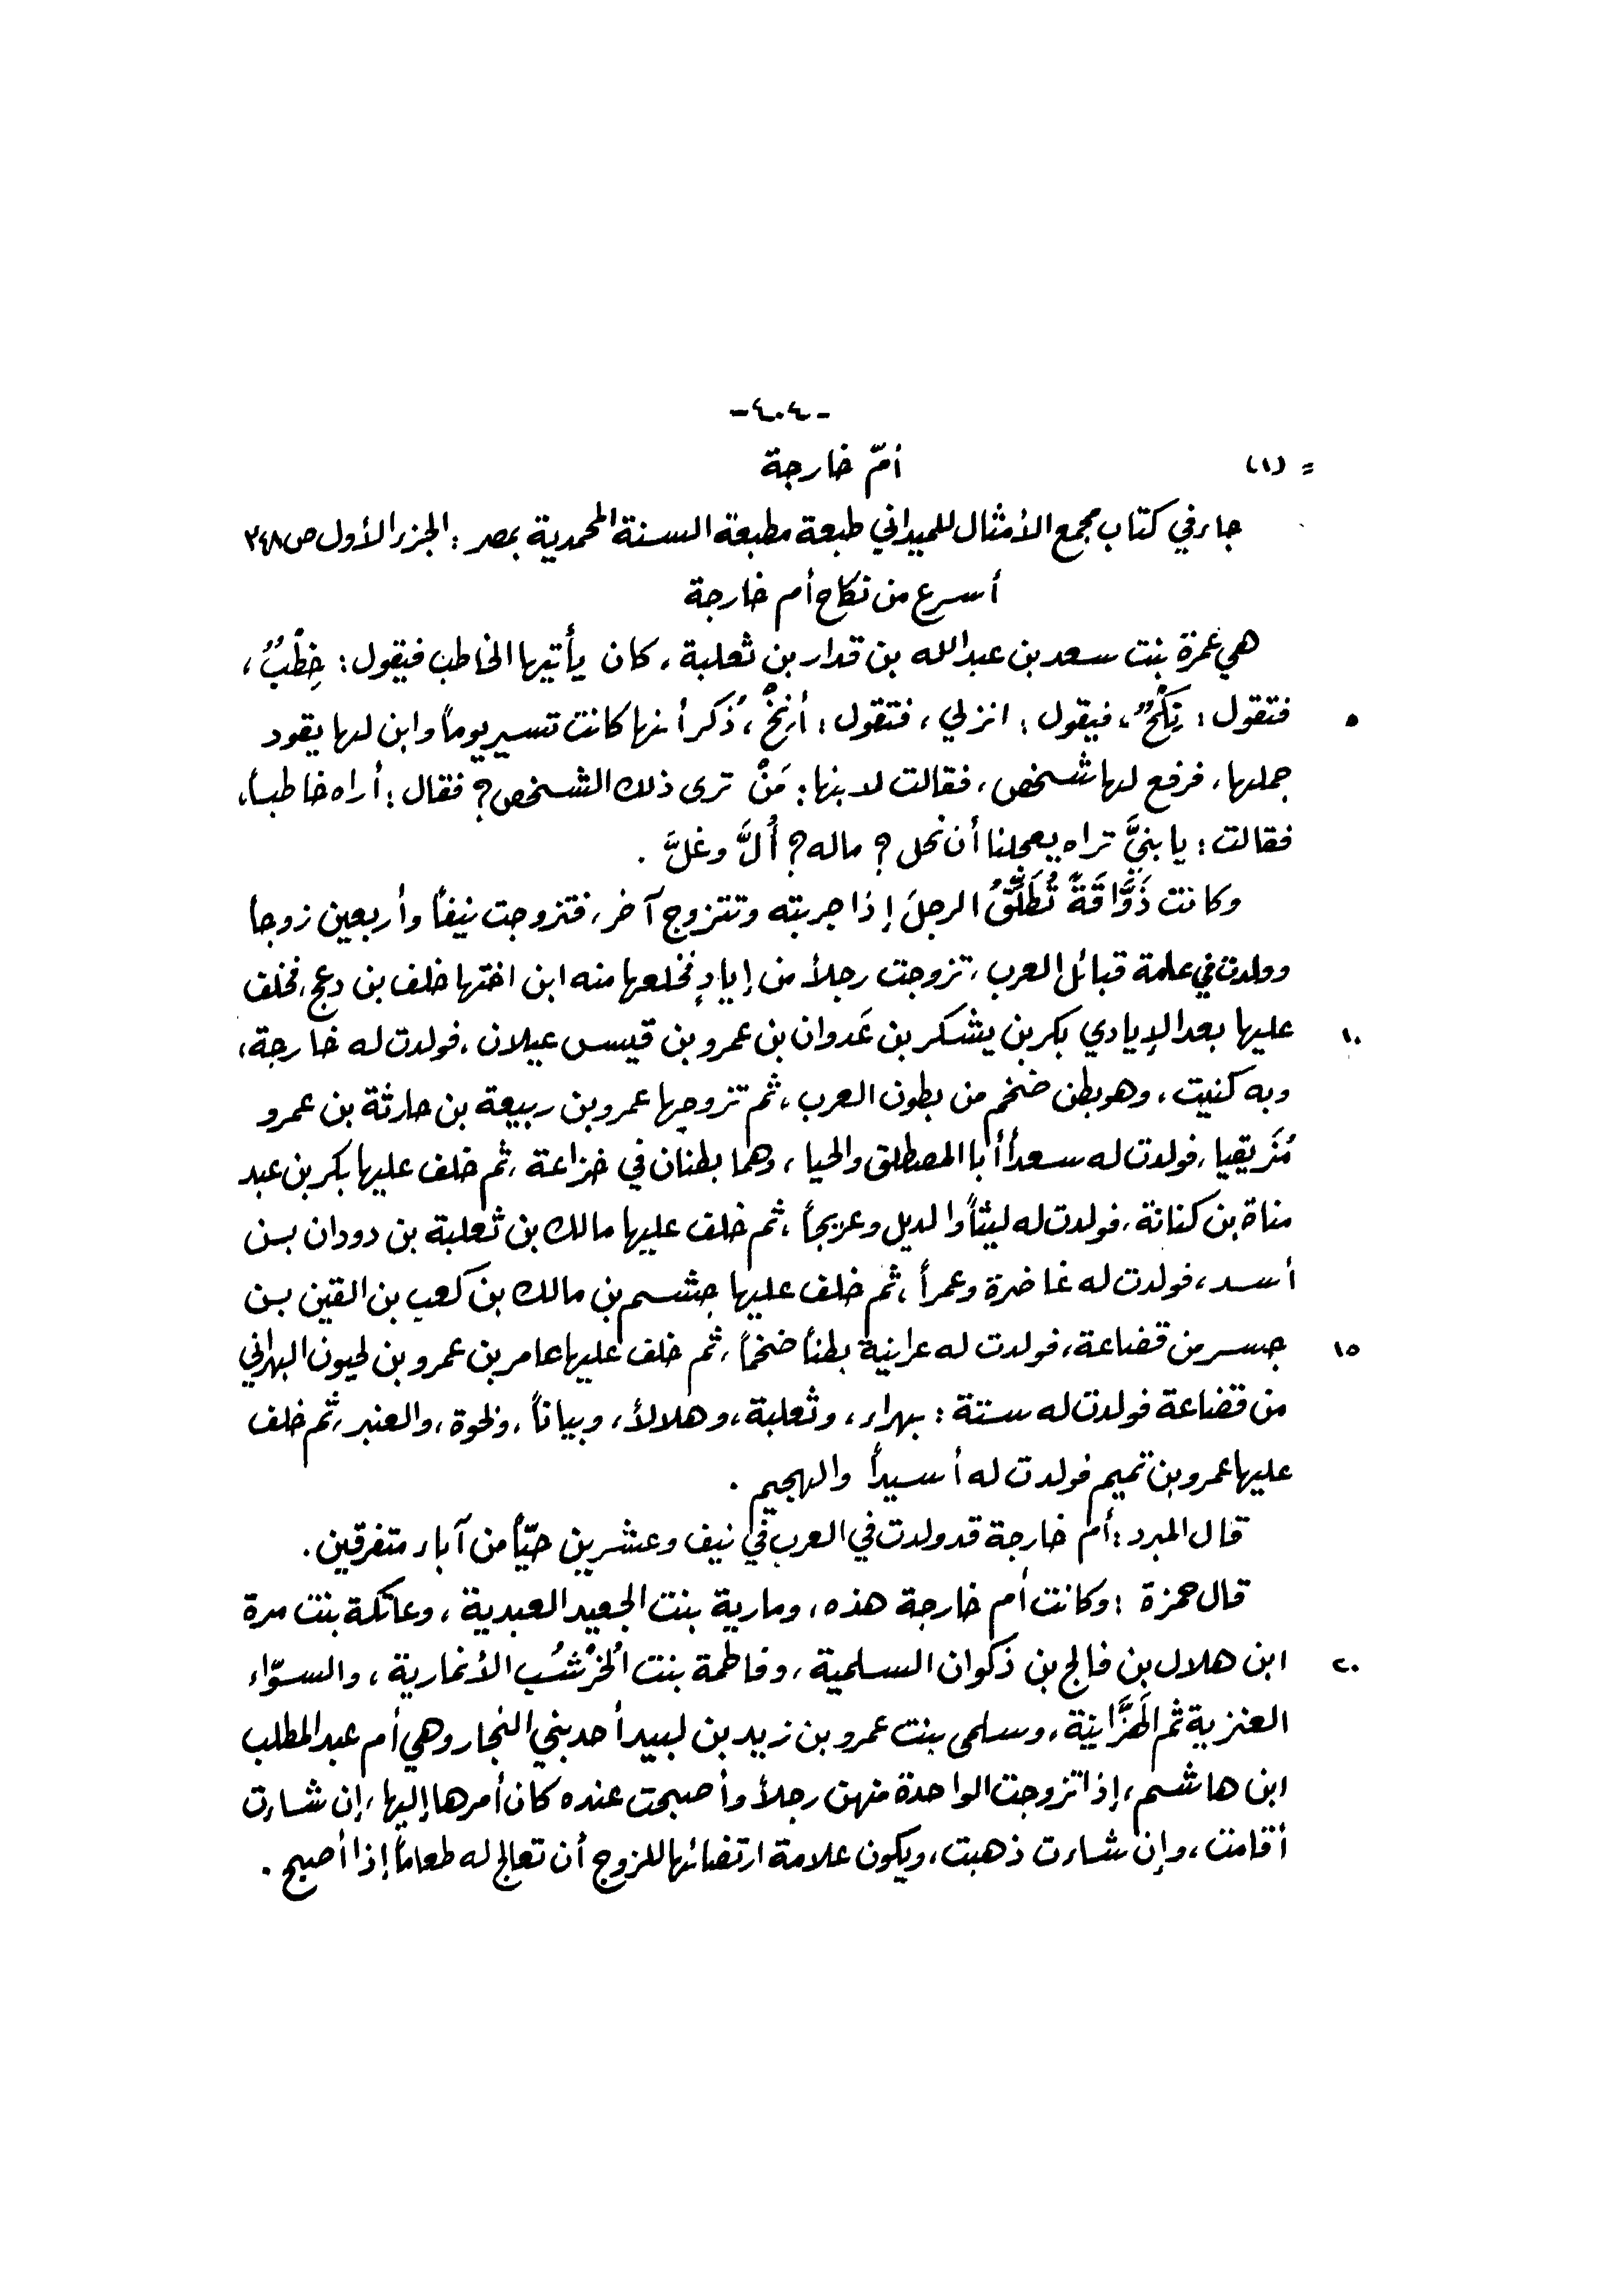 -٤٠٤-
= (١) أمّ خارجة
جاء في كتاب مجمع الأمثال للميداني طبعة مطبعة السنة المحمدية بمصر : الجزء الأول ص ٣٤٨
أسرع من نكاح أم خارجة
هي عَمْرَة بنت سعد بن عبدالله بن قدار بن ثعلبة، كان يأتيها الخاطب فيقول : خِطْبٌ ،
٥ فتقول : نِكْحٌ ، فيقول : انزلي ، فتقول : أنِخْ ، ذُكر أنها كانت تسير يوماً وابن لها يقود
جملها، فرفع لها شخص ، فقالت لابنها : مَنْ ترى ذلك الشخص ؟ فقال : أراه خاطباً،
فقالت : يا بنيَّ تراه يعجلنا أن نحل ؟ ماله ؟ أُلَّ وغلَّ .
وكانت ذَوَّاقَةً تُطَلِّقُ الرجلَ إذا جربته وتتزوج آخر، فتزوجت نيفاً وأربعين زوجاً
وولدت في عامة قبائل العرب، تزوجت رجلاً من إيادٍ فخلعها منه ابن اختها خلف بن دعج، فخلف
١٠ عليها بعد الإيادي بكر بن يشكر بن عَدوان بن عمرو بن قيس عيلان، فولدت له خارجة،
وبه كنيت، وهو بطن ضخم من بطون العرب، ثم تزوجها عمرو بن ربيعة بن حارثة بن عمرو
مُزَيقيا، فولدت له سعداً أبا المصطلق والحيا، وهما بطنان في خزاعة، ثم خلف عليها بكر بن عبد
مناة بن كنانة، فولدت له ليثاً والديل وعريجاً، ثم خلف عليها مالك بن ثعلبة بن دودان بن
أسد، فولدت له غاضرة وعمراً، ثم خلف عليها جشم بن مالك بن كعب بن القين بن
١٥ جسر من قضاعة، فولدت له عرانية بطناً ضخماً، ثم خلف عليها عامر بن عمرو بن لحيون البهراني
من قضاعة فولدت له ستة : بهراء، وثعلبة، وهلالاً، وبياناً، ولخوة، والعنبر، ثم خلف
عليها عمرو بن تميم فولدت له أسيداً والهجيم .
قال المبرد : أم خارجة قد ولدت في العرب في نيف وعشرين حيّاً من آباء متفرقين .
قال حمزة : وكانت أم خارجة هذه، ومارية بنت الجعيد العبدية، وعاتكة بنت مرة
٢٠ ابن هلال بن فالج بن ذكوان السلمية، وفاطمة بنت الخُرْشُب الأنمارية، والسوّاء
العنزية ثم الهَزَّانية، وسلمى بنت عمرو بن زيد بن لبيد أحد بني النجار وهي أم عبد المطلب
ابن هاشم، إذا تزوجت الواحدة منهن رجلاً وأصبحت عنده كان أمرها إليها، إن شاءت
أقامت، وإن شاءت ذهبت، ويكون علامة ارتضائها للزوج أن تعالج له طعاماً إذا أصبح .